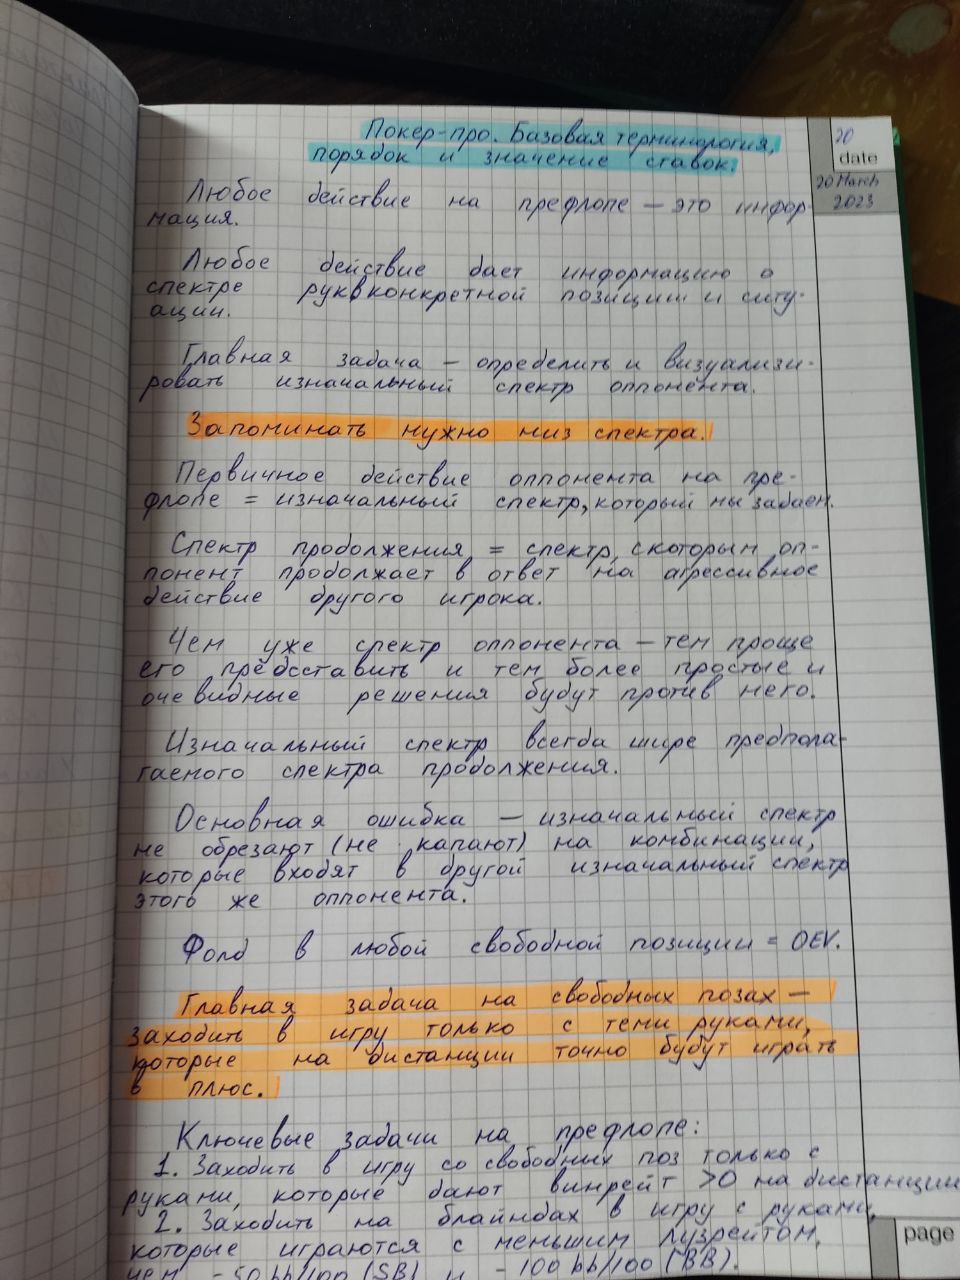 Покер-про. Базовая терминология,
порядок и значение ставок.
20
date
20 March
2023
Любое действие на префлопе — это инфор-
мация.
Любое действие дает информацию о
спектре рук в конкретной позиции и ситу-
ации.
Главная задача — определить и визуализи-
ровать изначальный спектр оппонента.
Запоминать нужно низ спектра.
Первичное действие оппонента на пре-
флопе = изначальный спектр, который мы задаем.
Спектр продолжения = спектр, с которым оп-
понент продолжает в ответ на агрессивное
действие другого игрока.
Чем уже спектр оппонента — тем проще
его предсставить и тем более простые и
очевидные решения будут против него.
Изначальный спектр всегда шире предпола-
гаемого спектра продолжения.
Основная ошибка — изначальный спектр
не обрезают (не капают) на комбинации,
которые входят в другой изначальный спектр
этого же оппонента.
Фолд в любой свободной позиции = 0EV.
Главная задача на свободных позах —
заходить в игру только с теми руками,
которые на дистанции точно будут играть
в плюс.
Ключевые задачи на префлопе:
1. Заходить в игру со свободных поз только с
руками, которые дают винрейт >0 на дистанции
2. Заходить на блайндах в игру с руками,
которые играются с меньшим лузрейтом,
чем -50 bb/100 (SB) и -100 bb/100 (BB).
page